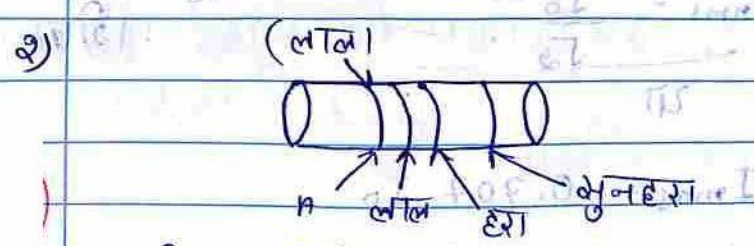 २)
(लाल)
" लाल हरा सुनहरा